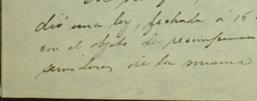 dió una ley, fechada á 16
con el objeto de recompensa
servidores de la misma